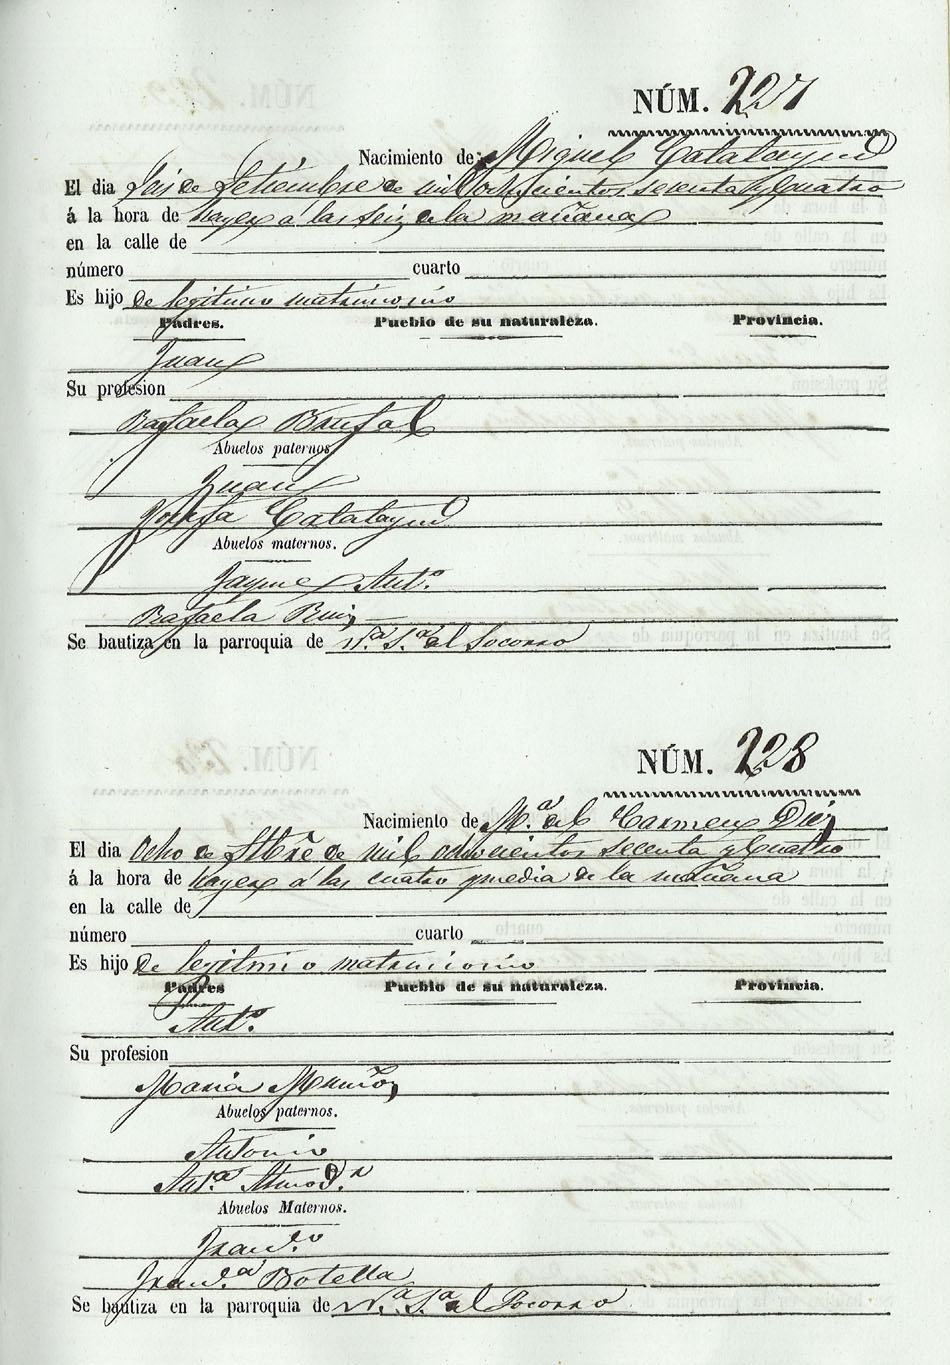 NÚM. 227
Nacimiento de Miguel Calatayud
El dia Seis de Setiembre de mil ochocientos sesenta y Cuatro
á la hora de hayer á las seis de la mañana
en la calle de
número cuarto
Es hijo de legitimo matrimonio
Padres. Pueblo de su naturaleza. Provincia.
Juan
Su profesion
Rafaela Brufal
Abuelos paternos.
Juan
Josefa Calatayud
Abuelos maternos.
Jayme Antº
Rafaela Ruiz
Se bautiza en la parroquia de Nª Sª del Socorro
NÚM. 228
Nacimiento de Mª del Carmen Diez
El dia Ocho de Stbre de mil ochocientos secenta y Cuatro
á la hora de hayer á las cuatro y media de la mañana
en la calle de
número cuarto
Es hijo de legitimo matrimonio
Padres Pueblo de su naturaleza. Provincia.
Antº
Su profesion
Maria Muñoz
Abuelos paternos.
Antonio
Antª
Abuelos Maternos.
Francº
Francª Botella
Se bautiza en la parroquia de Nª Sª del Socorro